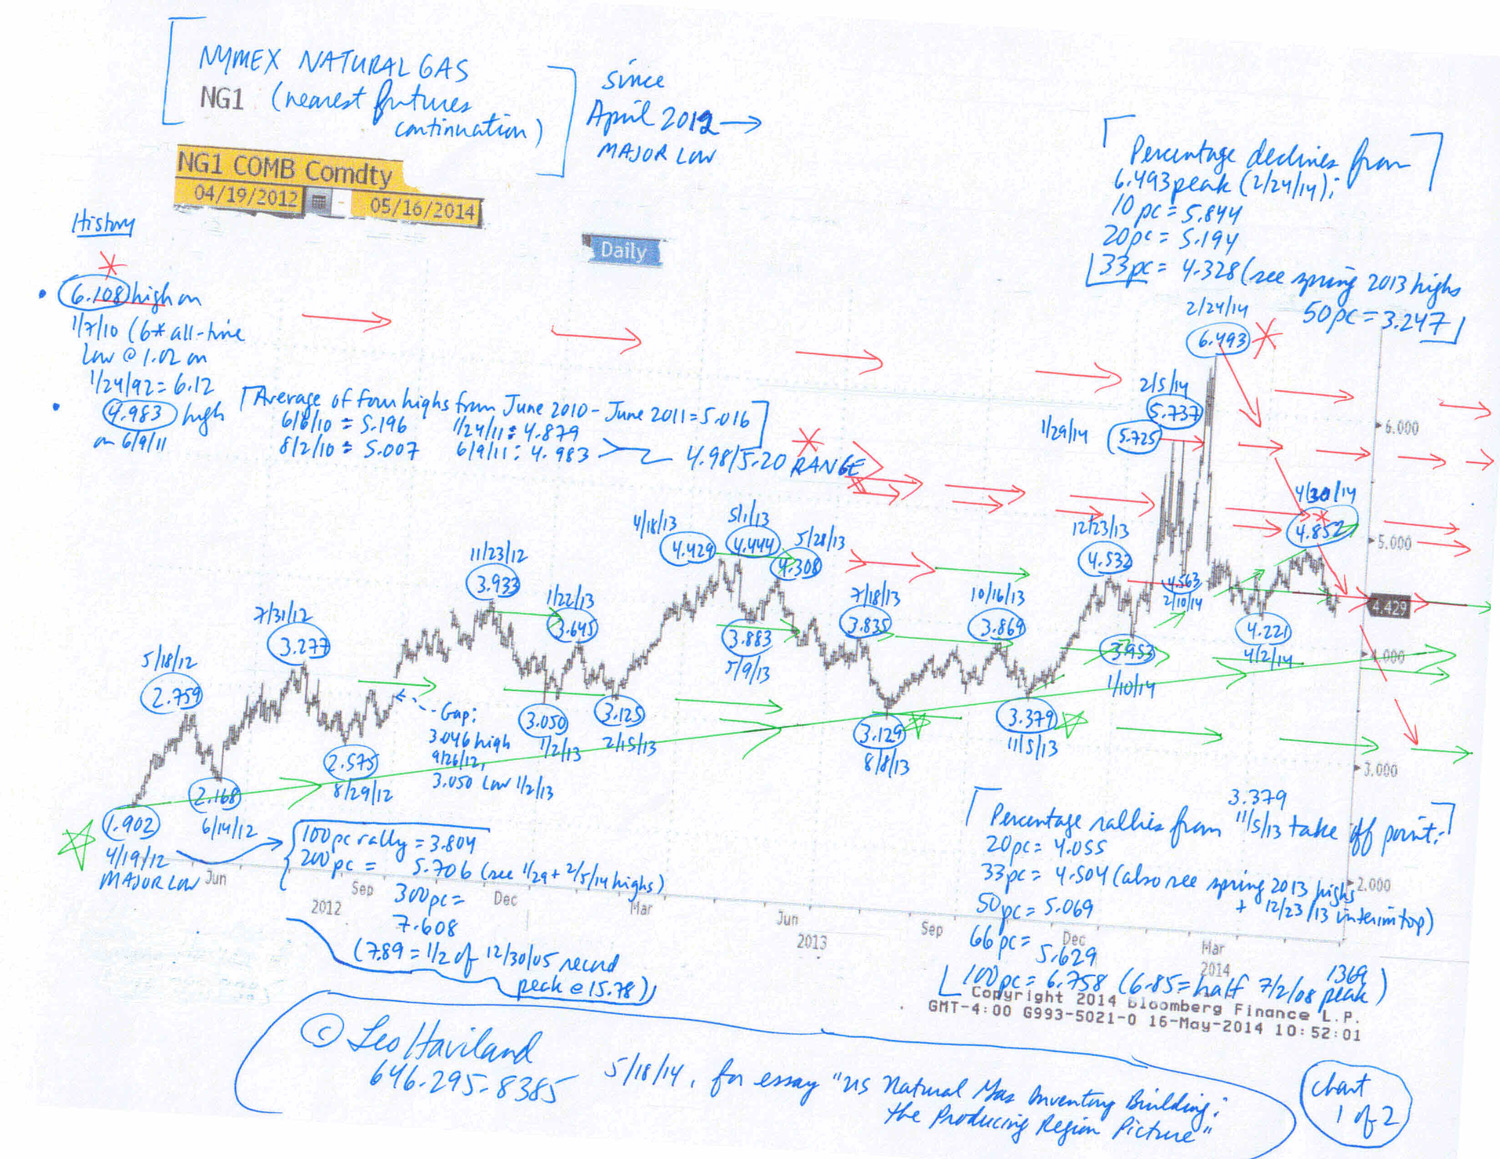 NYMEX NATURAL GAS
NG1 (nearest futures
continuation)
since
April 2012 →
MAJOR LOW
NG1 COMB Comdty
04/19/2012 - 05/16/2014
Daily
History
• 6.108 high on
1/7/10 (6* all-time
low @ 1.02 on
1/24/92 = 6.12
• 4.983 high
on 6/9/11
Average of four highs from June 2010 - June 2011 = 5.016
6/8/10 = 5.196 1/24/11 = 4.879
8/2/10 = 5.007 6/9/11 = 4.983
4.98/5.20 RANGE
Percentage declines from
6.493 peak (2/24/14):
10 pc = 5.844
20 pc = 5.194
33 pc = 4.328 (see spring 2013 highs
50 pc = 3.247
2/24/14
6.493
2/5/14
5.737
1/29/14
5.725
6.000
4/30/14
4.852
5.000
5/18/12
2.759
7/31/12
3.277
11/23/12
3.933
1/22/13
3.645
4/18/13
4.429
5/1/13
4.444
5/28/13
4.308
7/18/13
3.835
10/16/13
3.869
12/23/13
4.532
4.563
2/10/14
4.429
3.883
5/9/13
3.953
1/10/14
4.221
4/2/14
4.000
Gap:
3.046 high
9/26/12,
3.050 low 1/2/13
3.050
1/2/13
3.125
2/15/13
3.129
8/8/13
3.379
11/5/13
3.000
2.575
8/29/12
2.168
6/14/12
1.902
4/19/12
MAJOR LOW
100 pc rally = 3.804
200 pc = 5.706 (see 1/29 + 2/5/14 highs)
300 pc =
7.608
(7.89 = 1/2 of 12/30/05 record
peak @ 15.78)
Percentage rallies from 3.379
11/5/13 take off point:
20 pc = 4.055
33 pc = 4.504 (also see spring 2013 highs
+ 12/23/13 interim top)
50 pc = 5.069
66 pc =
5.629
100 pc = 6.758 (6.85 = half 7/2/08 1369 peak)
2.000
Jun Sep Dec Mar Jun Sep Dec Mar
2012 2013 2014
Copyright 2014 Bloomberg Finance L.P.
GMT-4:00 G993-5021-0 16-May-2014 10:52:01
© Leo Haviland
646.295.8385
5/18/14, for essay "US Natural Gas Inventory Building:
the Producing Region Picture"
Chart
1 of 2